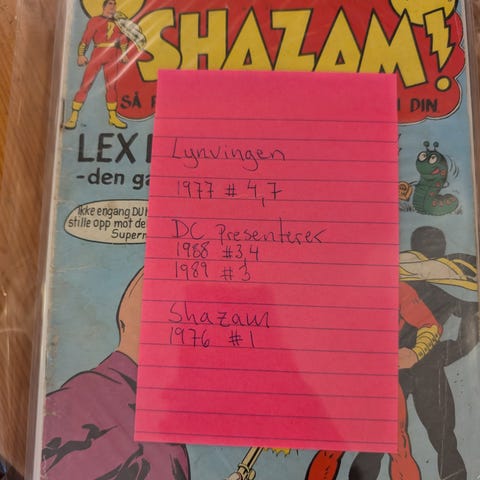 SHAZAM!
SÅ DIN
LEX
-den
Ikke engang DU
stille opp mot de
Superm
Lynvingen
1977 # 4,7
DC Presenterer
1988 #3,4
1989 #3
Shazam
1976 #1